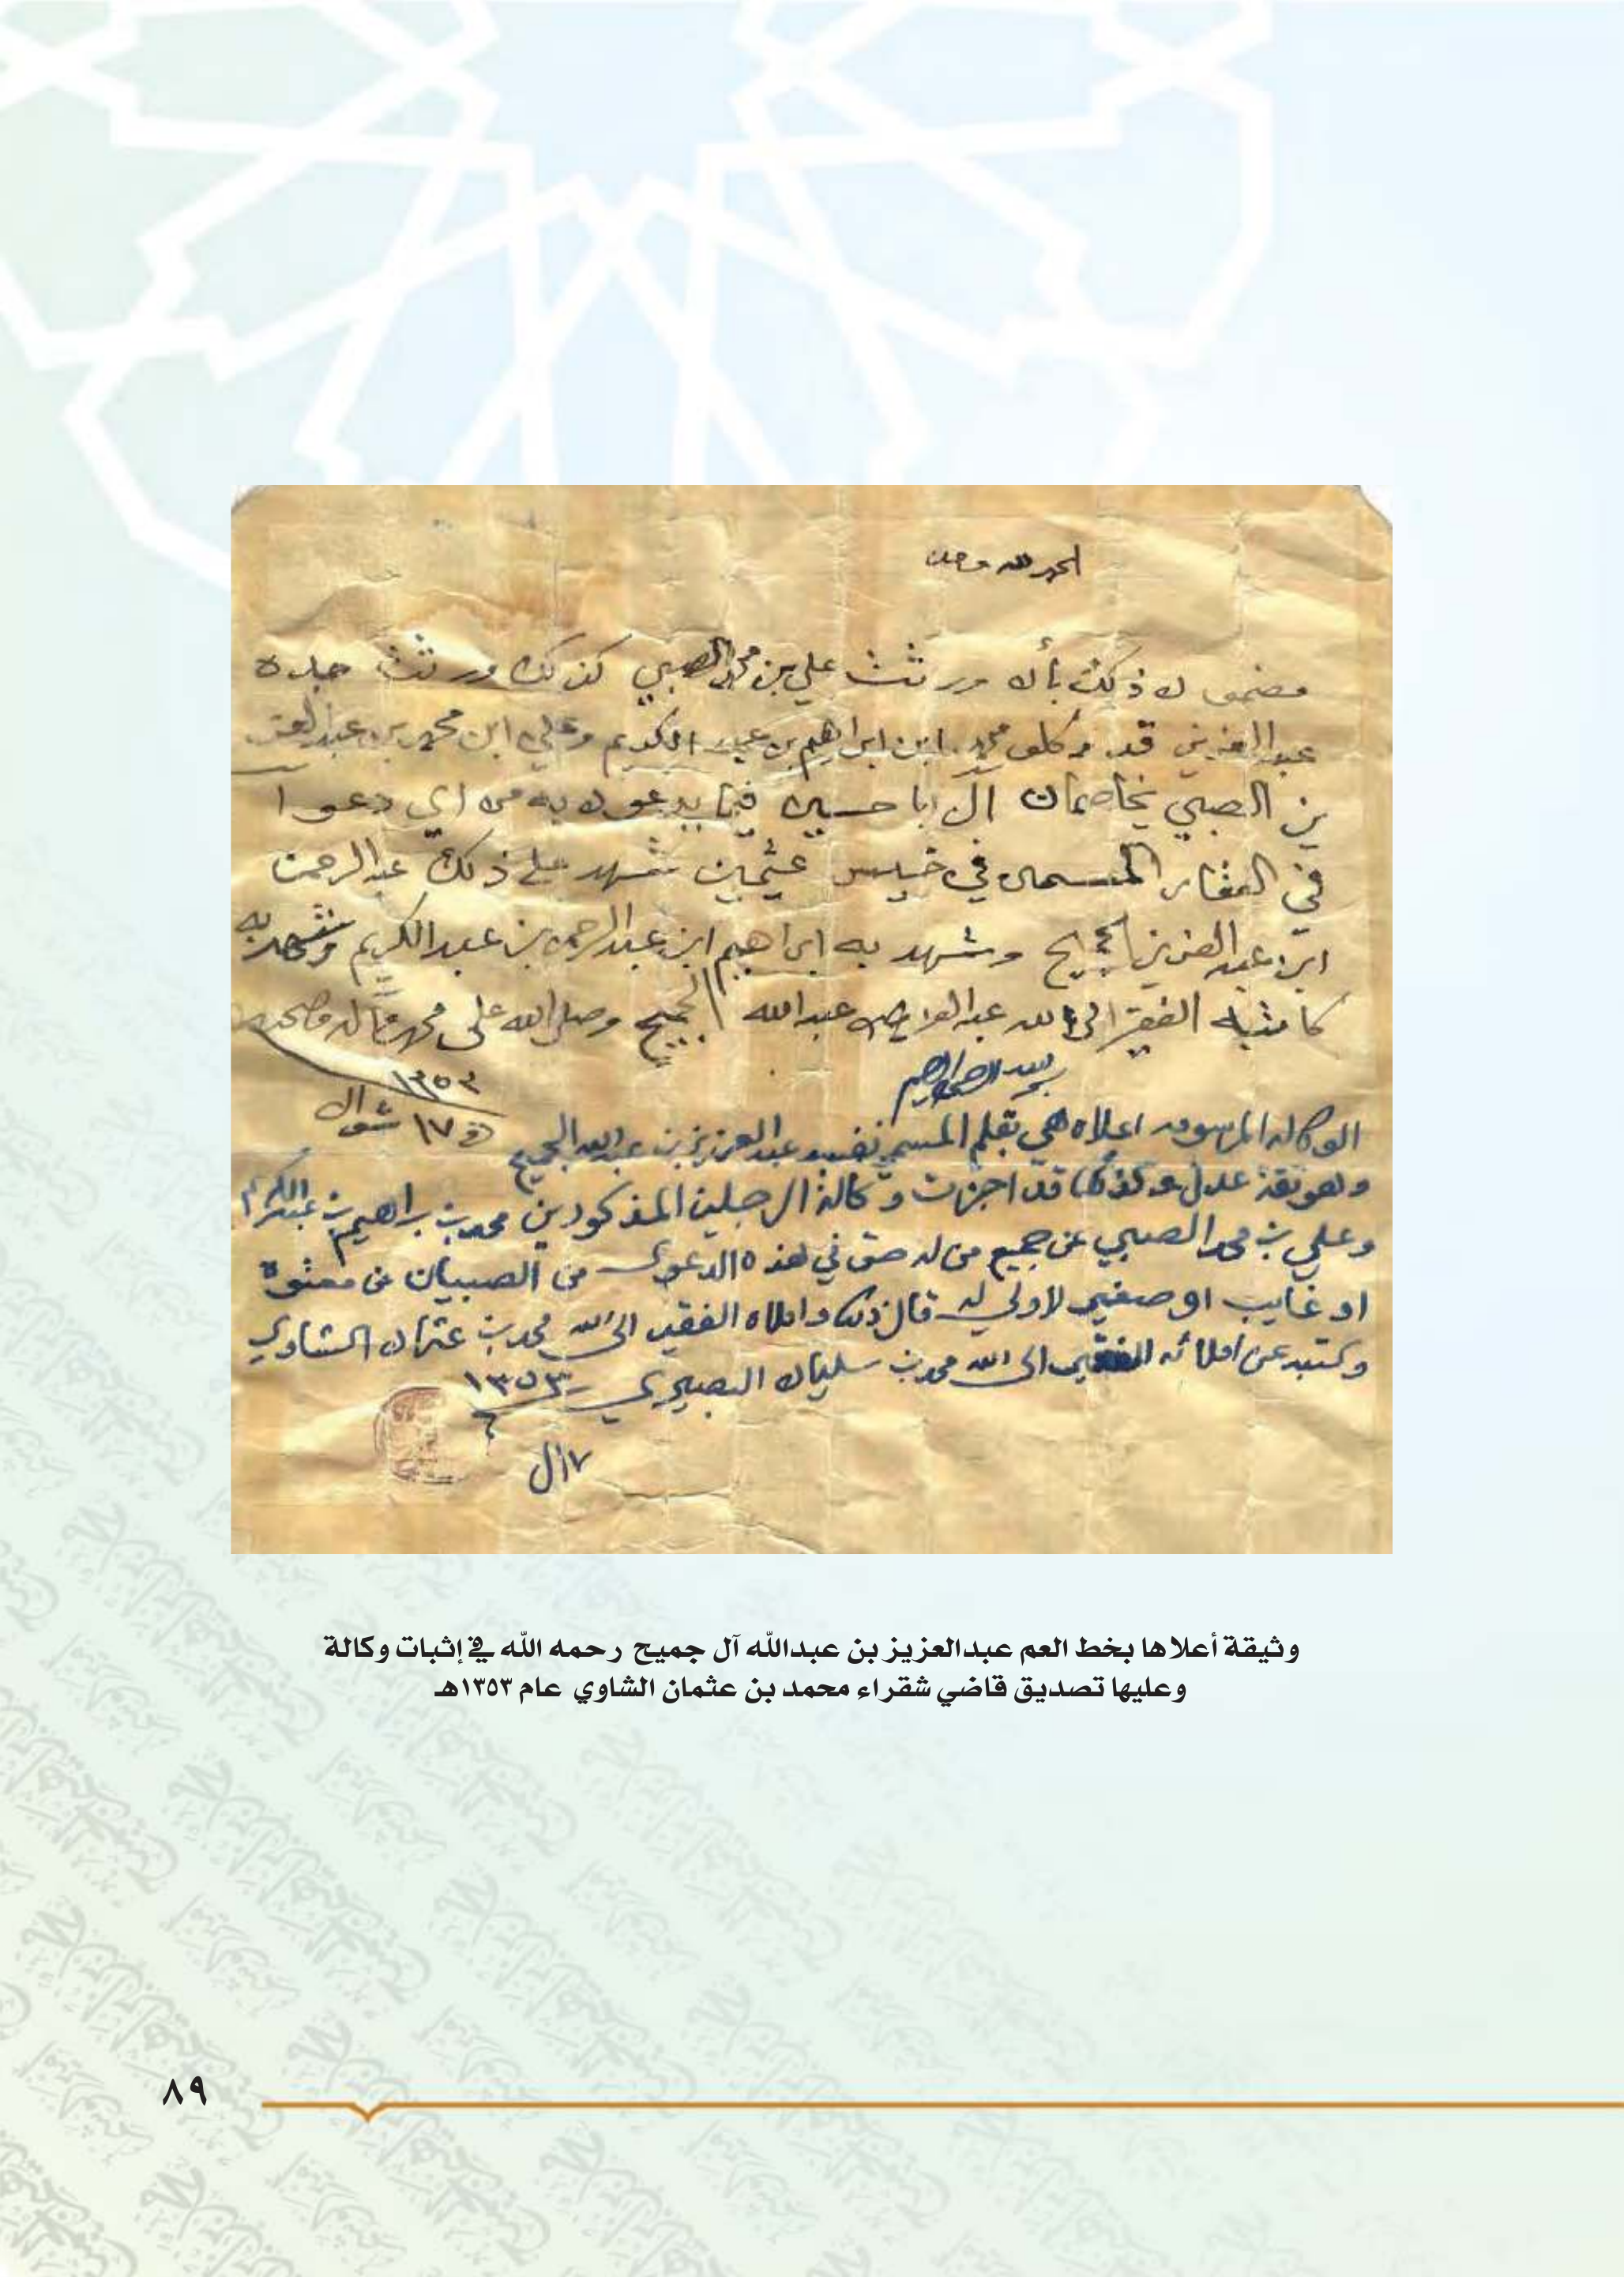 الحمد لله وحده
مضمون ذكك بأن ورثت علي بن محمد الصبي كذلك ورثت جده
عبدالعزيز قد وكلو محمد ابن ابراهيم بن عبد الكريم وعلي ابن محمد بن عبدالعز
يز الصبي يخاصمان آل ابا حسين فيما يدعون به من اي دعوا
في العقار المسمى في خميس عثيمين شهد على ذلك عبدالرحمن
ابن عبدالعزيز الجميح وشهد به ابراهيم ابن عبدالرحمن بن عبدالكريم وشهد به
كاتبه الفقير الى الله عبدالعزيز بن عبدالله الجميح وصلى الله على محمد وآله وصحبه
١٣٥٣
في ١٧ شوال
بسم الله الرحمن الرحيم
الوكاله المرسومه اعلاه هي بقلم المسمي نفسه عبدالعزيز بن عبدالله الجميح
وهو ثقة عدل وكذلك قد اجزت وكالة الرجلين المذكورين محمد بن براهيم بن عبدالكريم
وعلي بن محمد الصبي عن جميع من له حق في هذه الدعوى من الصبيان عن معتوه
او غايب او صغير لا ولي له قال ذلك واملاه الفقير الى الله محمد بن عثمان الشاوي
وكتبه عن املائه الفقير الى الله محمد بن سليمان البصيري ١٣٥٣
١٧ ل
وثيقة أعلاها بخط العم عبدالعزيز بن عبدالله آل جميح رحمه الله في إثبات وكالة
وعليها تصديق قاضي شقراء محمد بن عثمان الشاوي عام ١٣٥٣هـ
٨٩